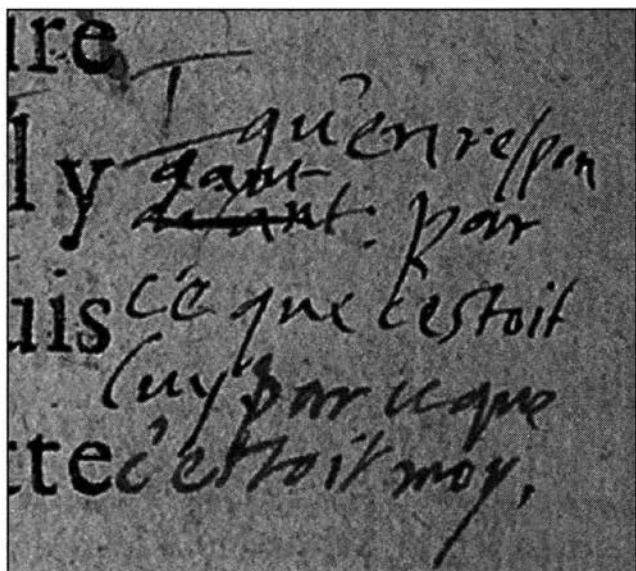 ire
ly
qu'en respon
dant
par
uis
ce que c'estoit
luy par ce que
tte
c'estoit moy.